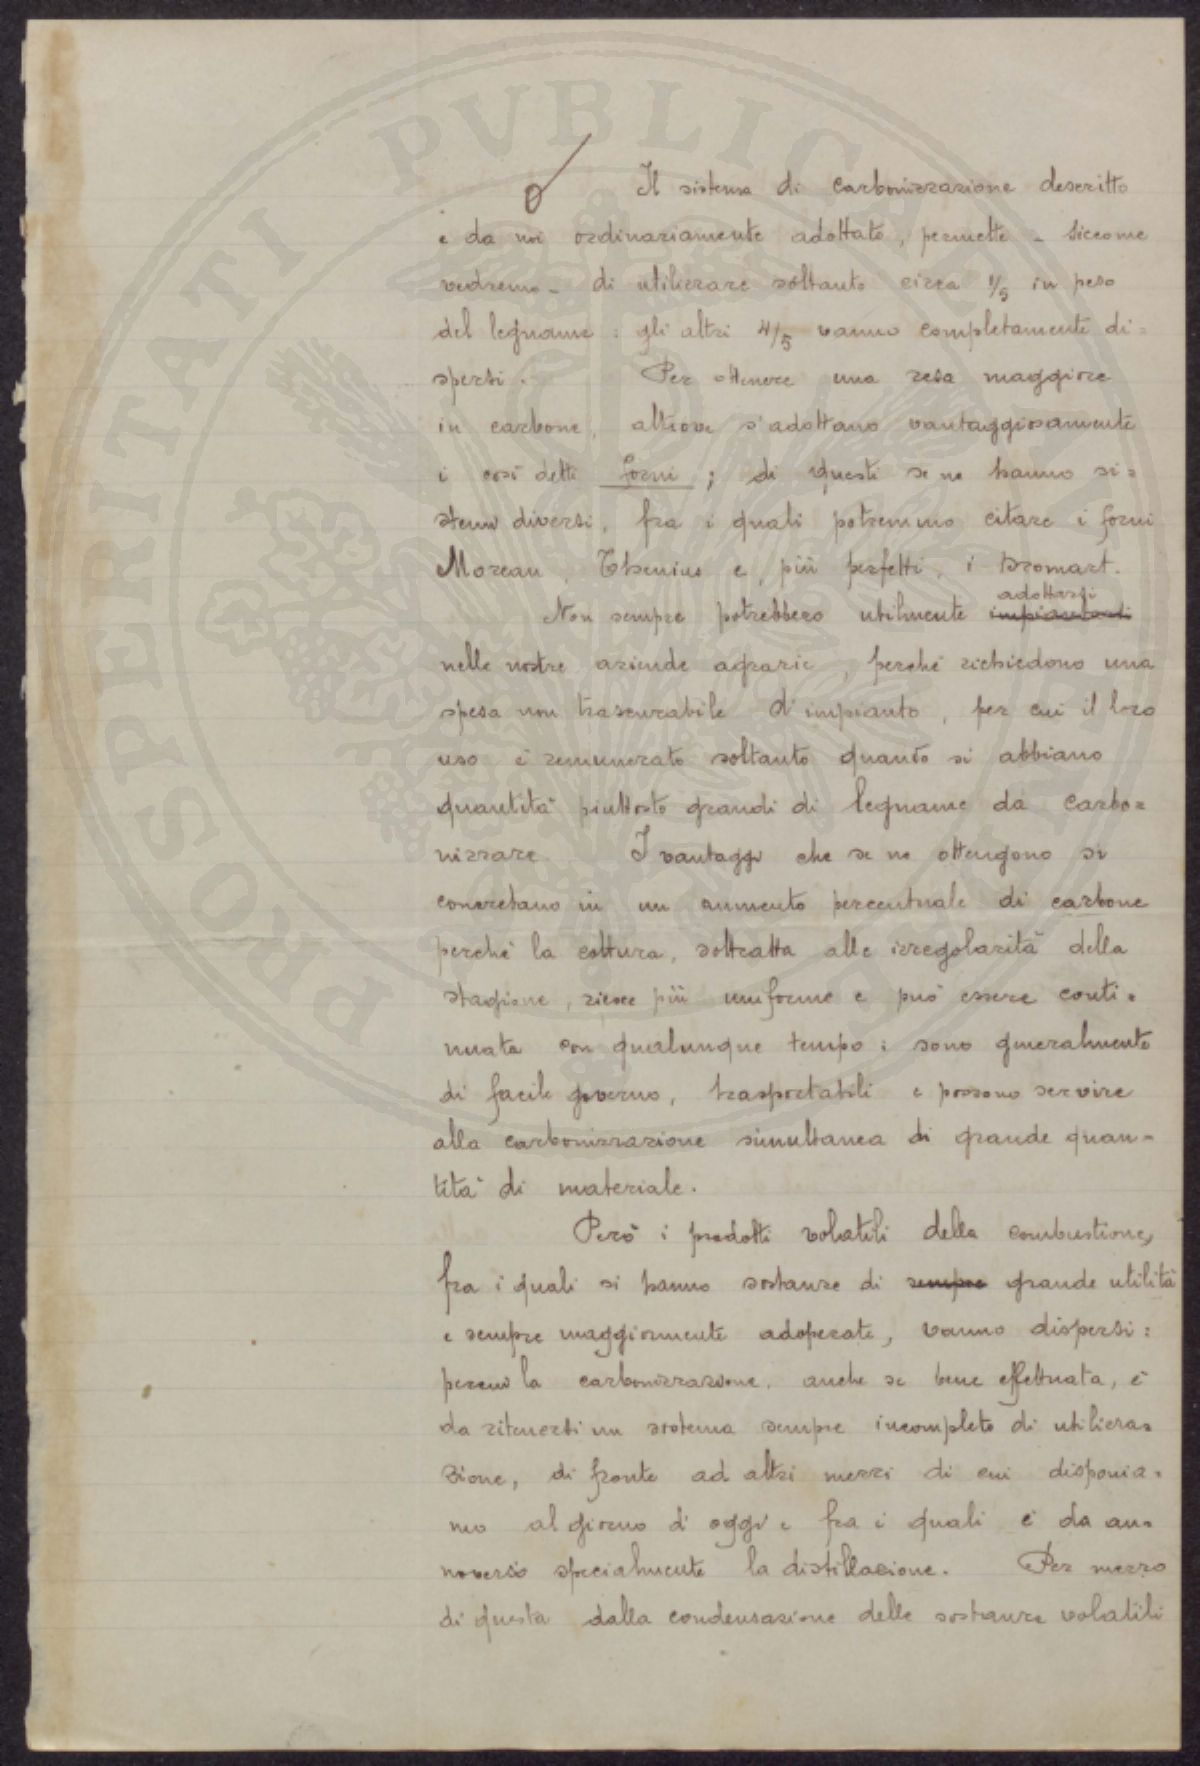 PROSPERITATI PUBLICAE AUGENDAE
Il sistema di carbonizzazione descritto
e da noi ordinariamente adottato, permette - siccome
vedremo - di utilizzare soltanto circa 1/5 in peso
del legname : gli altri 4/5 vanno completamente di=
spersi. Per ottenere una resa maggiore
in carbone, altrove s'adottano vantaggiosamente
i così detti forni ; di questi se ne hanno si=
stemi diversi, fra i quali potremmo citare i forni
Moreau, Thenius e, più perfetti, i Dromart.
adottarsi
Non sempre potrebbero utilmente impiantarsi
nelle nostre aziende agrarie, perché richiedono una
spesa non trascurabile d'impianto, per cui il loro
uso è remunerato soltanto quando si abbiano
quantità piuttosto grandi di legname da carbo=
nizzare. I vantaggi che se ne ottengono si
concretano in un aumento percentuale di carbone
perché la cottura, sottratta alle irregolarità della
stagione, riesce più uniforme e può essere conti=
nuata con qualunque tempo ; sono generalmente
di facile governo, trasportabili e possono servire
alla carbonizzazione simultanea di grande quan=
tità di materiale.
Però i prodotti volatili della combustione,
fra i quali si hanno sostanze di sempre grande utilità
e sempre maggiormente adoperate, vanno dispersi :
perciò la carbonizzazione, anche se bene effettuata, è
da ritenersi un sistema sempre incompleto di utilizza=
zione, di fronte ad altri mezzi di cui disponia=
mo al giorno d'oggi e fra i quali è da an=
noverarsi specialmente la distillazione. Per mezzo
di questa dalla condensazione delle sostanze volatili